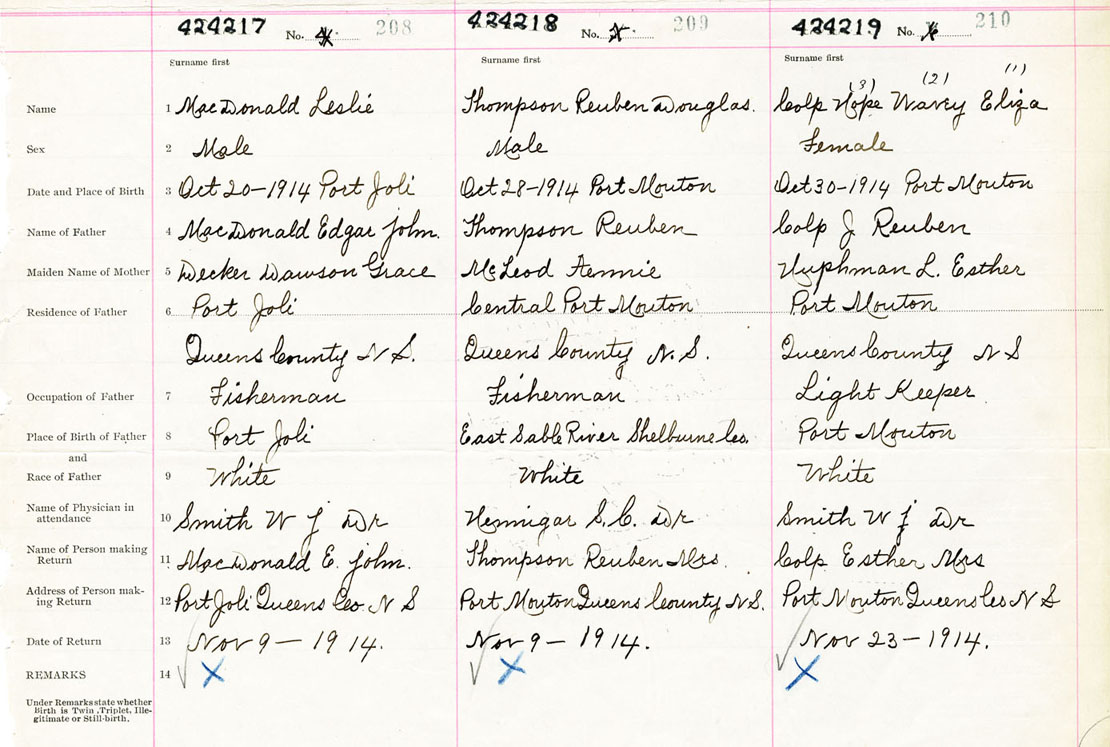 424217 No. 4 208 424218 No. 5 209 424219 No. 6 210
Surname first Surname first Surname first
(3) (2) (1)
Name 1 MacDonald Leslie Thompson Reuben Douglas. Colp Hope Wavey Eliza
Sex 2 Male Male Female
Date and Place of Birth 3 Oct 20-1914 Port Joli Oct 28-1914 Port Mouton Oct 30-1914 Port Mouton
Name of Father 4 MacDonald Edgar John. Thompson Reuben Colp J Reuben
Maiden Name of Mother 5 Decker Dawson Grace McLeod Fennie Huphman L. Esther
Residence of Father 6 Port Joli Central Port Mouton Port Mouton
Queens County N S. Queens County N. S. Queens County N S
Occupation of Father 7 Fisherman Fisherman Light Keeper
Place of Birth of Father 8 Port Joli East Sable River Shelburne Co. Port Mouton
and
Race of Father 9 White White White
Name of Physician in
attendance 10 Smith W J Dr Hennigar S. C. Dr Smith W J Dr
Name of Person making
Return 11 MacDonald E. John. Thompson Reuben Mrs. Colp Esther Mrs
Address of Person mak-
ing Return 12 Port Joli Queens Co. N S Port Mouton Queens County N S. Port Mouton Queens Co N S
Date of Return 13 Nov 9 - 1914. Nov 9 - 1914. Nov 23 - 1914.
REMARKS 14 X X X
Under Remarks state whether
Birth is Twin, Triplet, Ille-
gitimate or Still-birth.